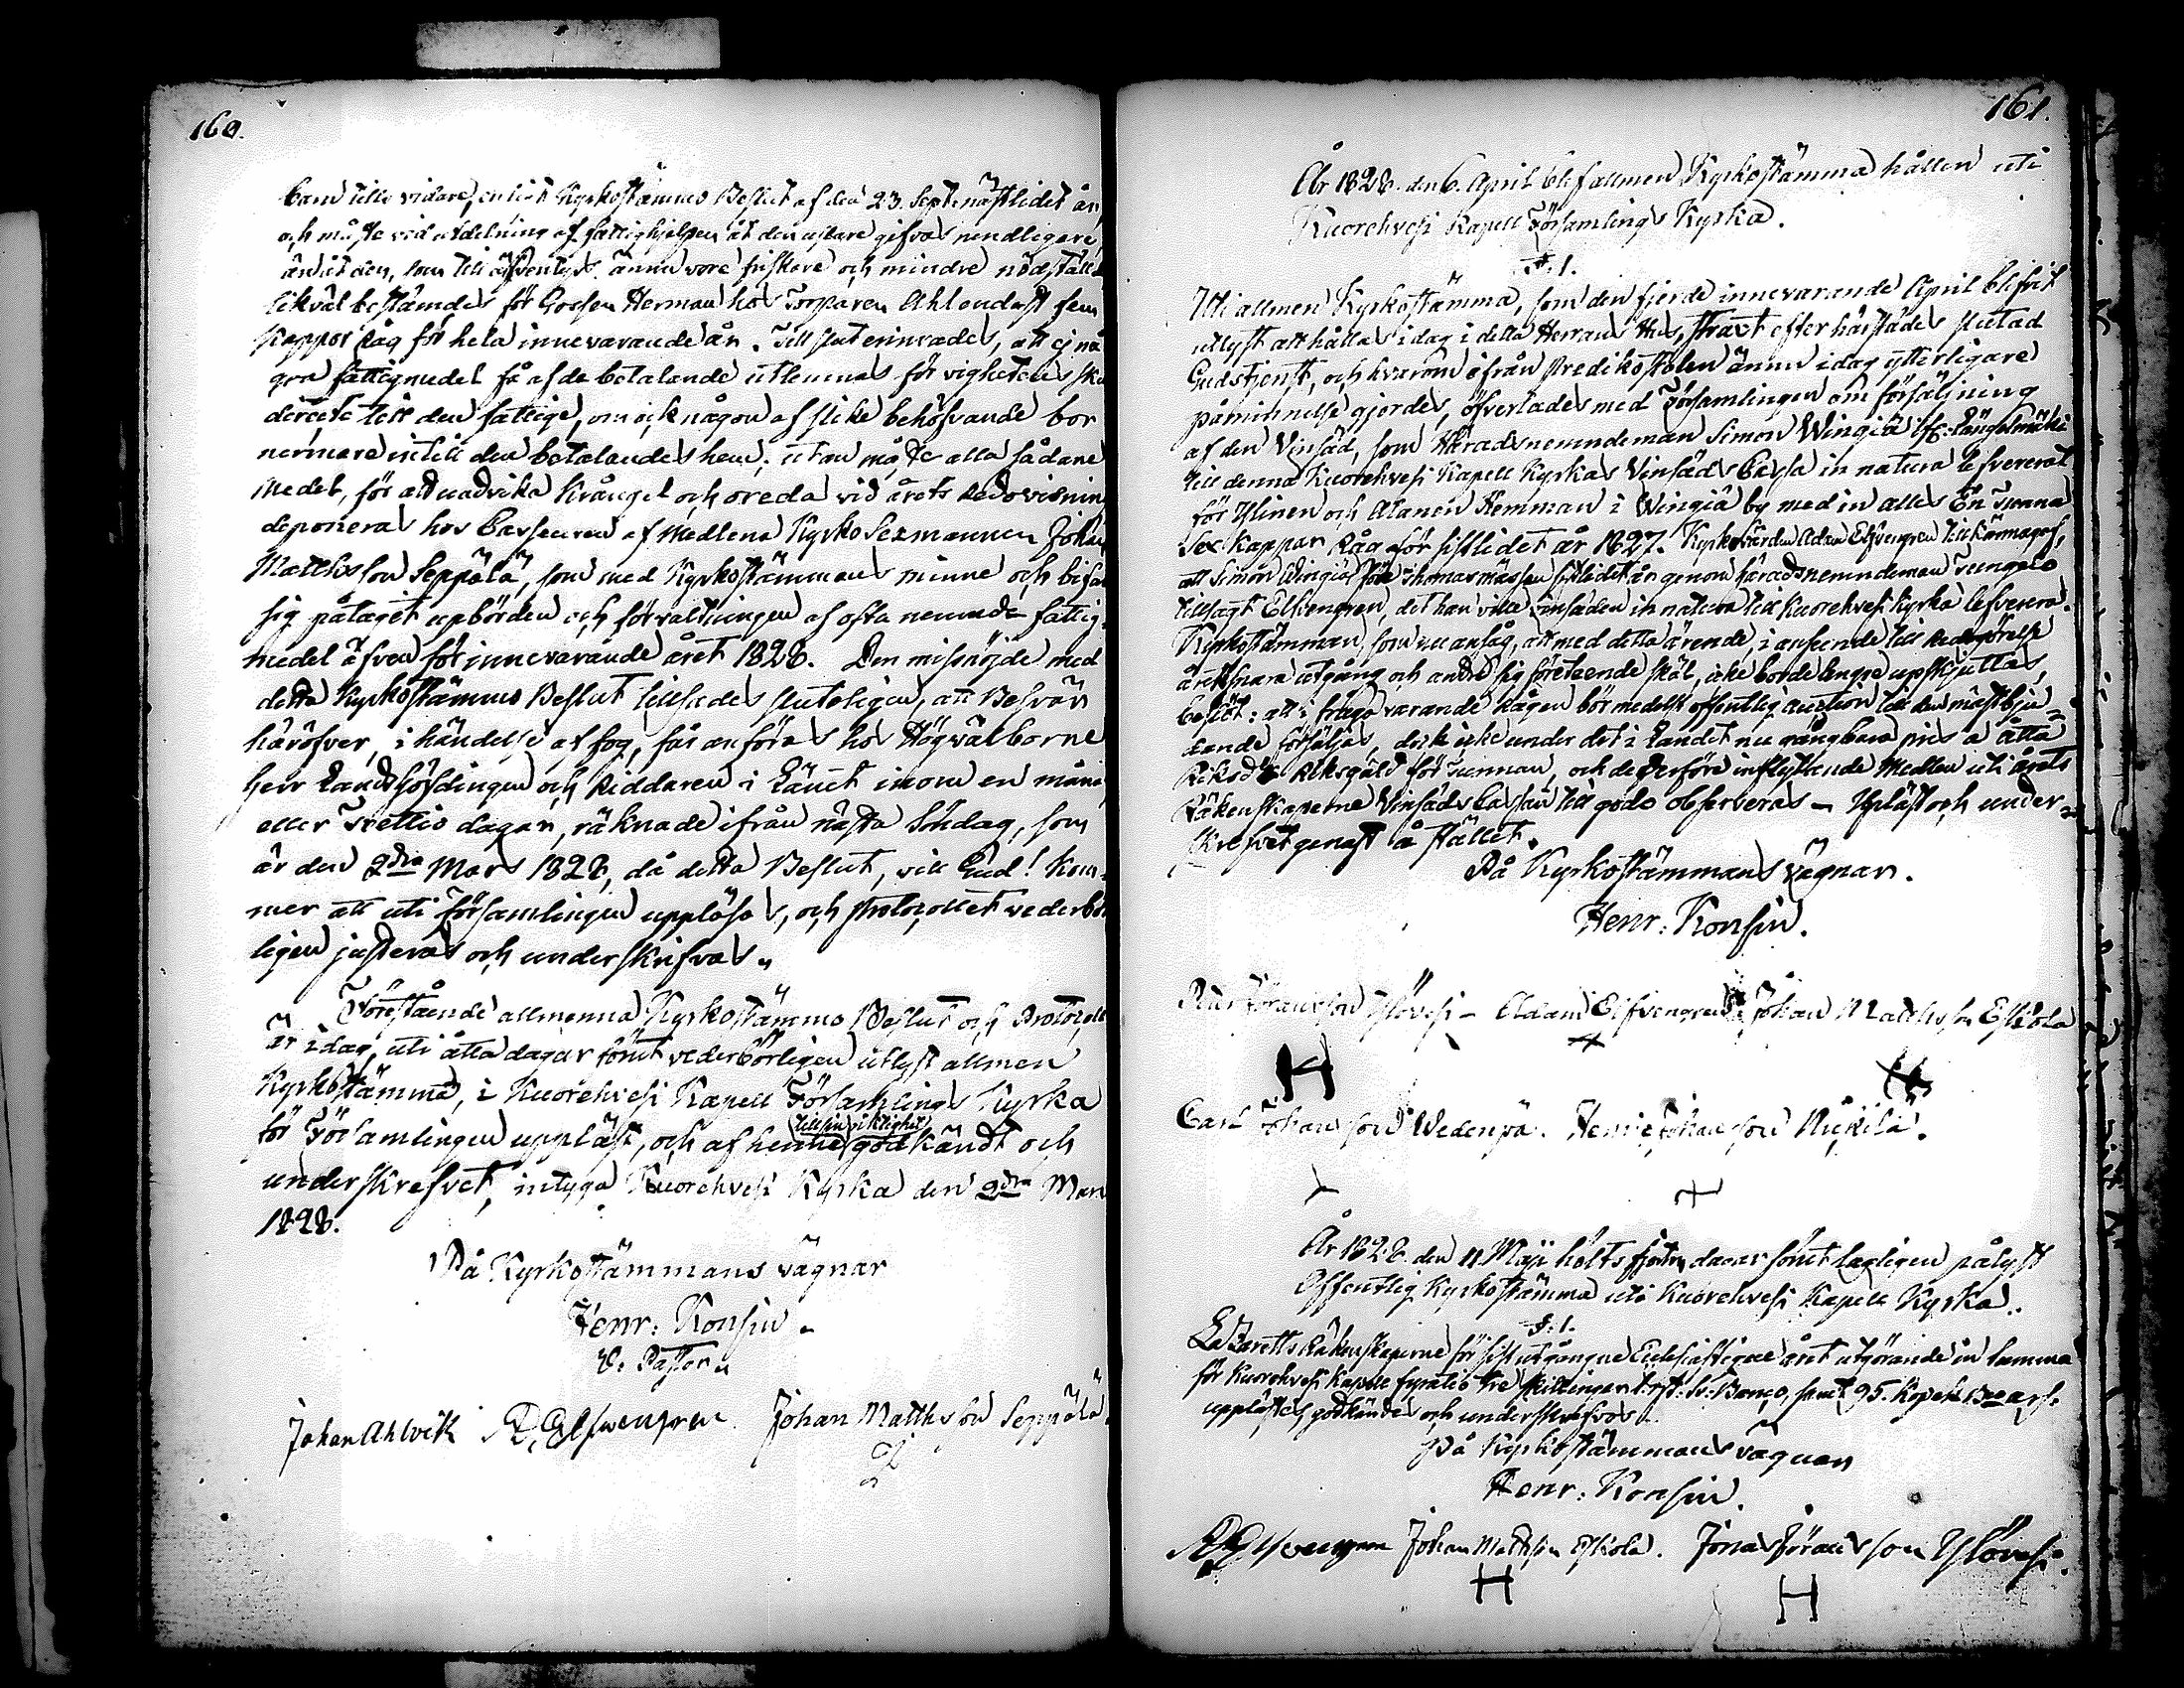 160.
barn tills vidare, enligt Kyrkostämmo Beslut af den 23. Sept. nästlidet år,
och måste vid utdelning af fattighjelpen åt den uslare gifvas nendligare,
än åt den, som till äfventyrs ännu vore friskare och mindre nödställd
likväl bestämdes för Gossen Herman hos Torparen Ahl endast fem
Kappor Råg för hela innevarande år. Till slut erinrades, att ej nå
gra fattigmedel få af de betalande utlemnas för vighetens sku
directe till den fattige, om ock någon af slike behöfvande bor
nermare intill den betalandes hem; utan måste alla sådane
Medel, för att undvika krångel och oreda vid årets Redovisnin
deponeras hos Casseuren af Medlena Kyrko Sexmannen Johan
Matthsson Seppälä, som med Kyrkostämmans minne och bifa
sig påtaget upbörden och förvaltningen af ofta nemnde fattig
medel äfven för innevarande året 1828. Den missnöjde med
detta Kyrkostämmo Beslut tillsades sluteligen, att Besvär
häröfver, i händelse af fog, får anföras hos Högvälborne
herr Landshöfdingen och Riddaren i Länet inom en måna
eller Trettio dagar, räknade ifrån nästa Söndag, som
är den 2dra Mars 1828, då detta Beslut, vill Gud! kom-
mer att uti församlingen uppläsas, och Protocollet vederbö
ligen justeras och underskrifvas.
Förestående allmenna Kyrkostämmo Beslut och Protocoll
är idag, uti åtta dagar förut vederbörligen utlyst allmen
Kyrkostämma, i Kuorehvesi Kapell Församlings Kyrka
för Församlingen uppläst, och af henne till sin riktighet godkändt och
underskrefvet, intyga Kuorehvesi Kyrka den 2dra Mars
1828.
På Kyrkostämmans vägnar
Henr: Konsin.
V. Pastor.
Johan Ahlvik A, Elfwengren. Johan Matthsson Seppälä.
161.
År 1828. den 6. April blef allmen Kyrkostämma hållen uti
Kuorehvesi Kapell Församlings Kyrka.
§. 1.
Uti allmen Kyrkostämma, som den fjerde innevarande April blifvit
utlyst att hållas i dag i detta Herrans Hus, straxt efter härstädes slutad
Gudstjenst, och hvarom ifrån Predikostolen ännu idag ytterligare
påminnelse gjordes, öfverlades med Församlingen om försäljning
af den Vinsäd, som Häradsnemndeman Simon Wingiä ifr. Längelmäki
till denna Kuorehvesi Kapell Kyrkas Vinsäds Cassa in natura lefvererat
för Ylinen och Alanen Hemman i Wingiä by med in alles En Tunna
Sex Kappar Råg för sistlidet år 1827. Kyrkovärden Adam Elfvengren tillkännagaf,
att Simon Wingiä före Thomasmässan sistlidet år genom häradsnemndeman
tillsagt Elfvengren, det han ville vinsäden in natura till Kuorehvesi Kyrka lefverera.
Kyrkostämman, som nu ansåg, att med detta ärende, i anseende till Redogörelse
årets snara utgång och andre sig företeende skäl, icke borde lengre upskjuttas,
beslöt: att i fråga varande Rågen bör medelst offentlig auction till den mästbju-
dande försäljas, dock icke under det i Landet nu gångbara pris a åtta
Riksd. Riksgäld för Tunnan, och de derföre inflytande Medlen uti årets
Räkenskaperne Vinsäds Cassan till godo observeras - Upläst och under-
skrefvet genast å stället.
På Kyrkostämmans vägnar.
Henr: Konsin.
Per Jöransson Ylövesi - Adam Elfvengren Johan Matthsson Eskola
Carl Johansson Wedenpä. Henric Johansson Mickilä.
År 1828. den 11 Maji hölts fjorton dagar förut lagligen pålyst
Offentlig Kyrkostämma uti Kuorehvesi Kapell Kyrka.
§. 1.
Lazaretts Räkenskaperne för sist utgångne Ecclesiastique året utgörande in Summa
för Kuorehvesi Kapell fyratio tre skillingar Sv: Banco, samt 95. Kopek
upplästes godkändes och underskrefvos.
På Kyrkostämmans vägnar
Henr: Konsin.
A, Elfwengren Johan Mathson Eskola. Jonas Jöransson Ylövesi.
H H